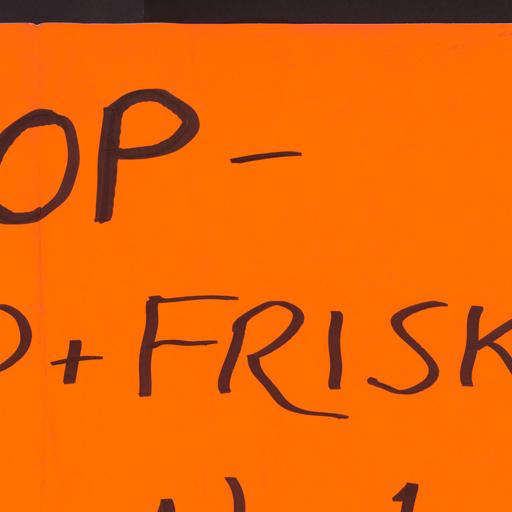 OP -
P + FRISK